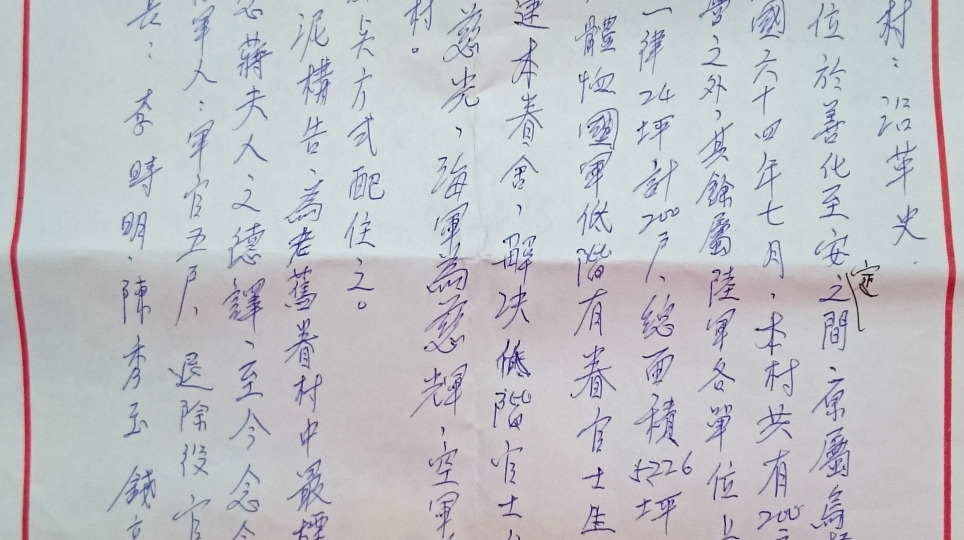 村：沿革史.
位於善化至安定之間、原屬烏
國六十四年七月，本村共有200
之外，其餘屬陸軍各單位
一律24坪計200戶、總面積5226坪
體恤國軍低階有眷官士生
建本眷舍，解決低階官士
慈光，海軍為慈暉，空軍
村。
方式配住之。
泥構告、為老舊眷村中最
蔣夫人之德譯、至今念念
軍人：軍官五戶、退除役官
長：李時明、陳秀玉 錢